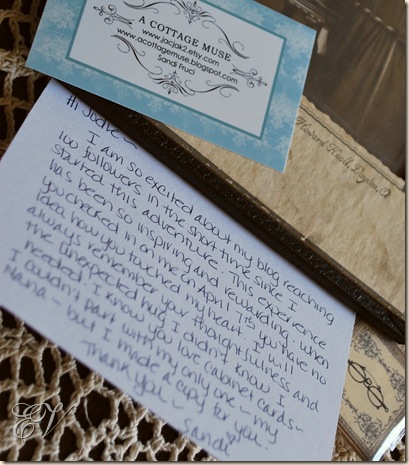 A COTTAGE MUSE
www.jacjak2.etsy.com
www.acottagemuse.blogspot.com
Sandi Fruci
Howard Webb, Dayton, O.
Hi Jodie~
I am so excited about my blog reaching
100 followers in the short time since I
started this adventure. This experience
has been so inspiring and rewarding. When
you checked in on me on April 1st, you have no
idea how you touched my heart. I will
always remember your thoughtfulness and
the unexpected hug I didn't know I
needed. I know you love cabinet cards~
I couldn't part with my only one~ my
Nana~ but I made a copy for you!
Thank you~
Sandi
EV